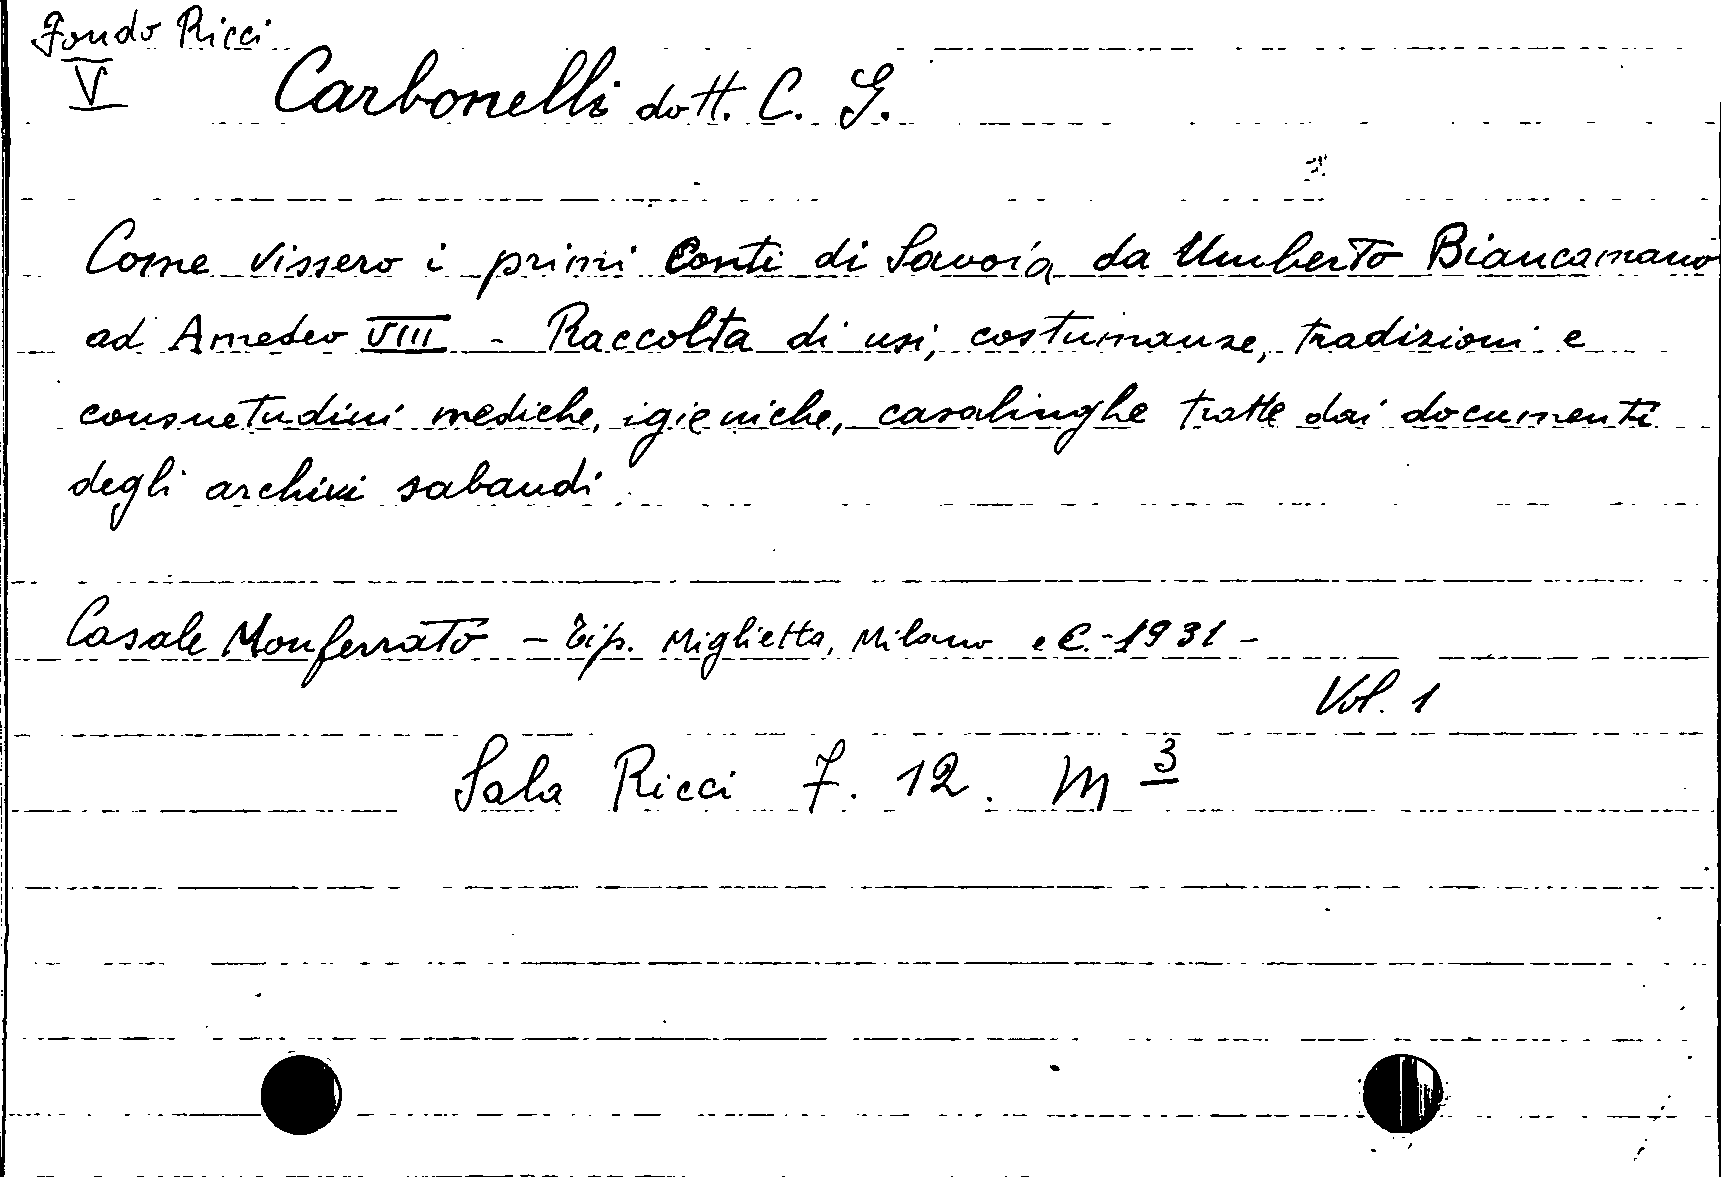 Fondo Ricci
V
Carbonelli dott. C. G.
Come vissero i primi Conti di Savoia da Umberto Biancamano
ad Amedeo VIII - Raccolta di usi, costumanze, tradizioni e
consuetudini mediche, igieniche, casalinghe tratte dai documenti
degli archivi sabaudi.
Casale Monferrato - Tip. Miglietta, Milano e C. - 1931 -
Vol. 1
Sala Ricci F. 12. M 3